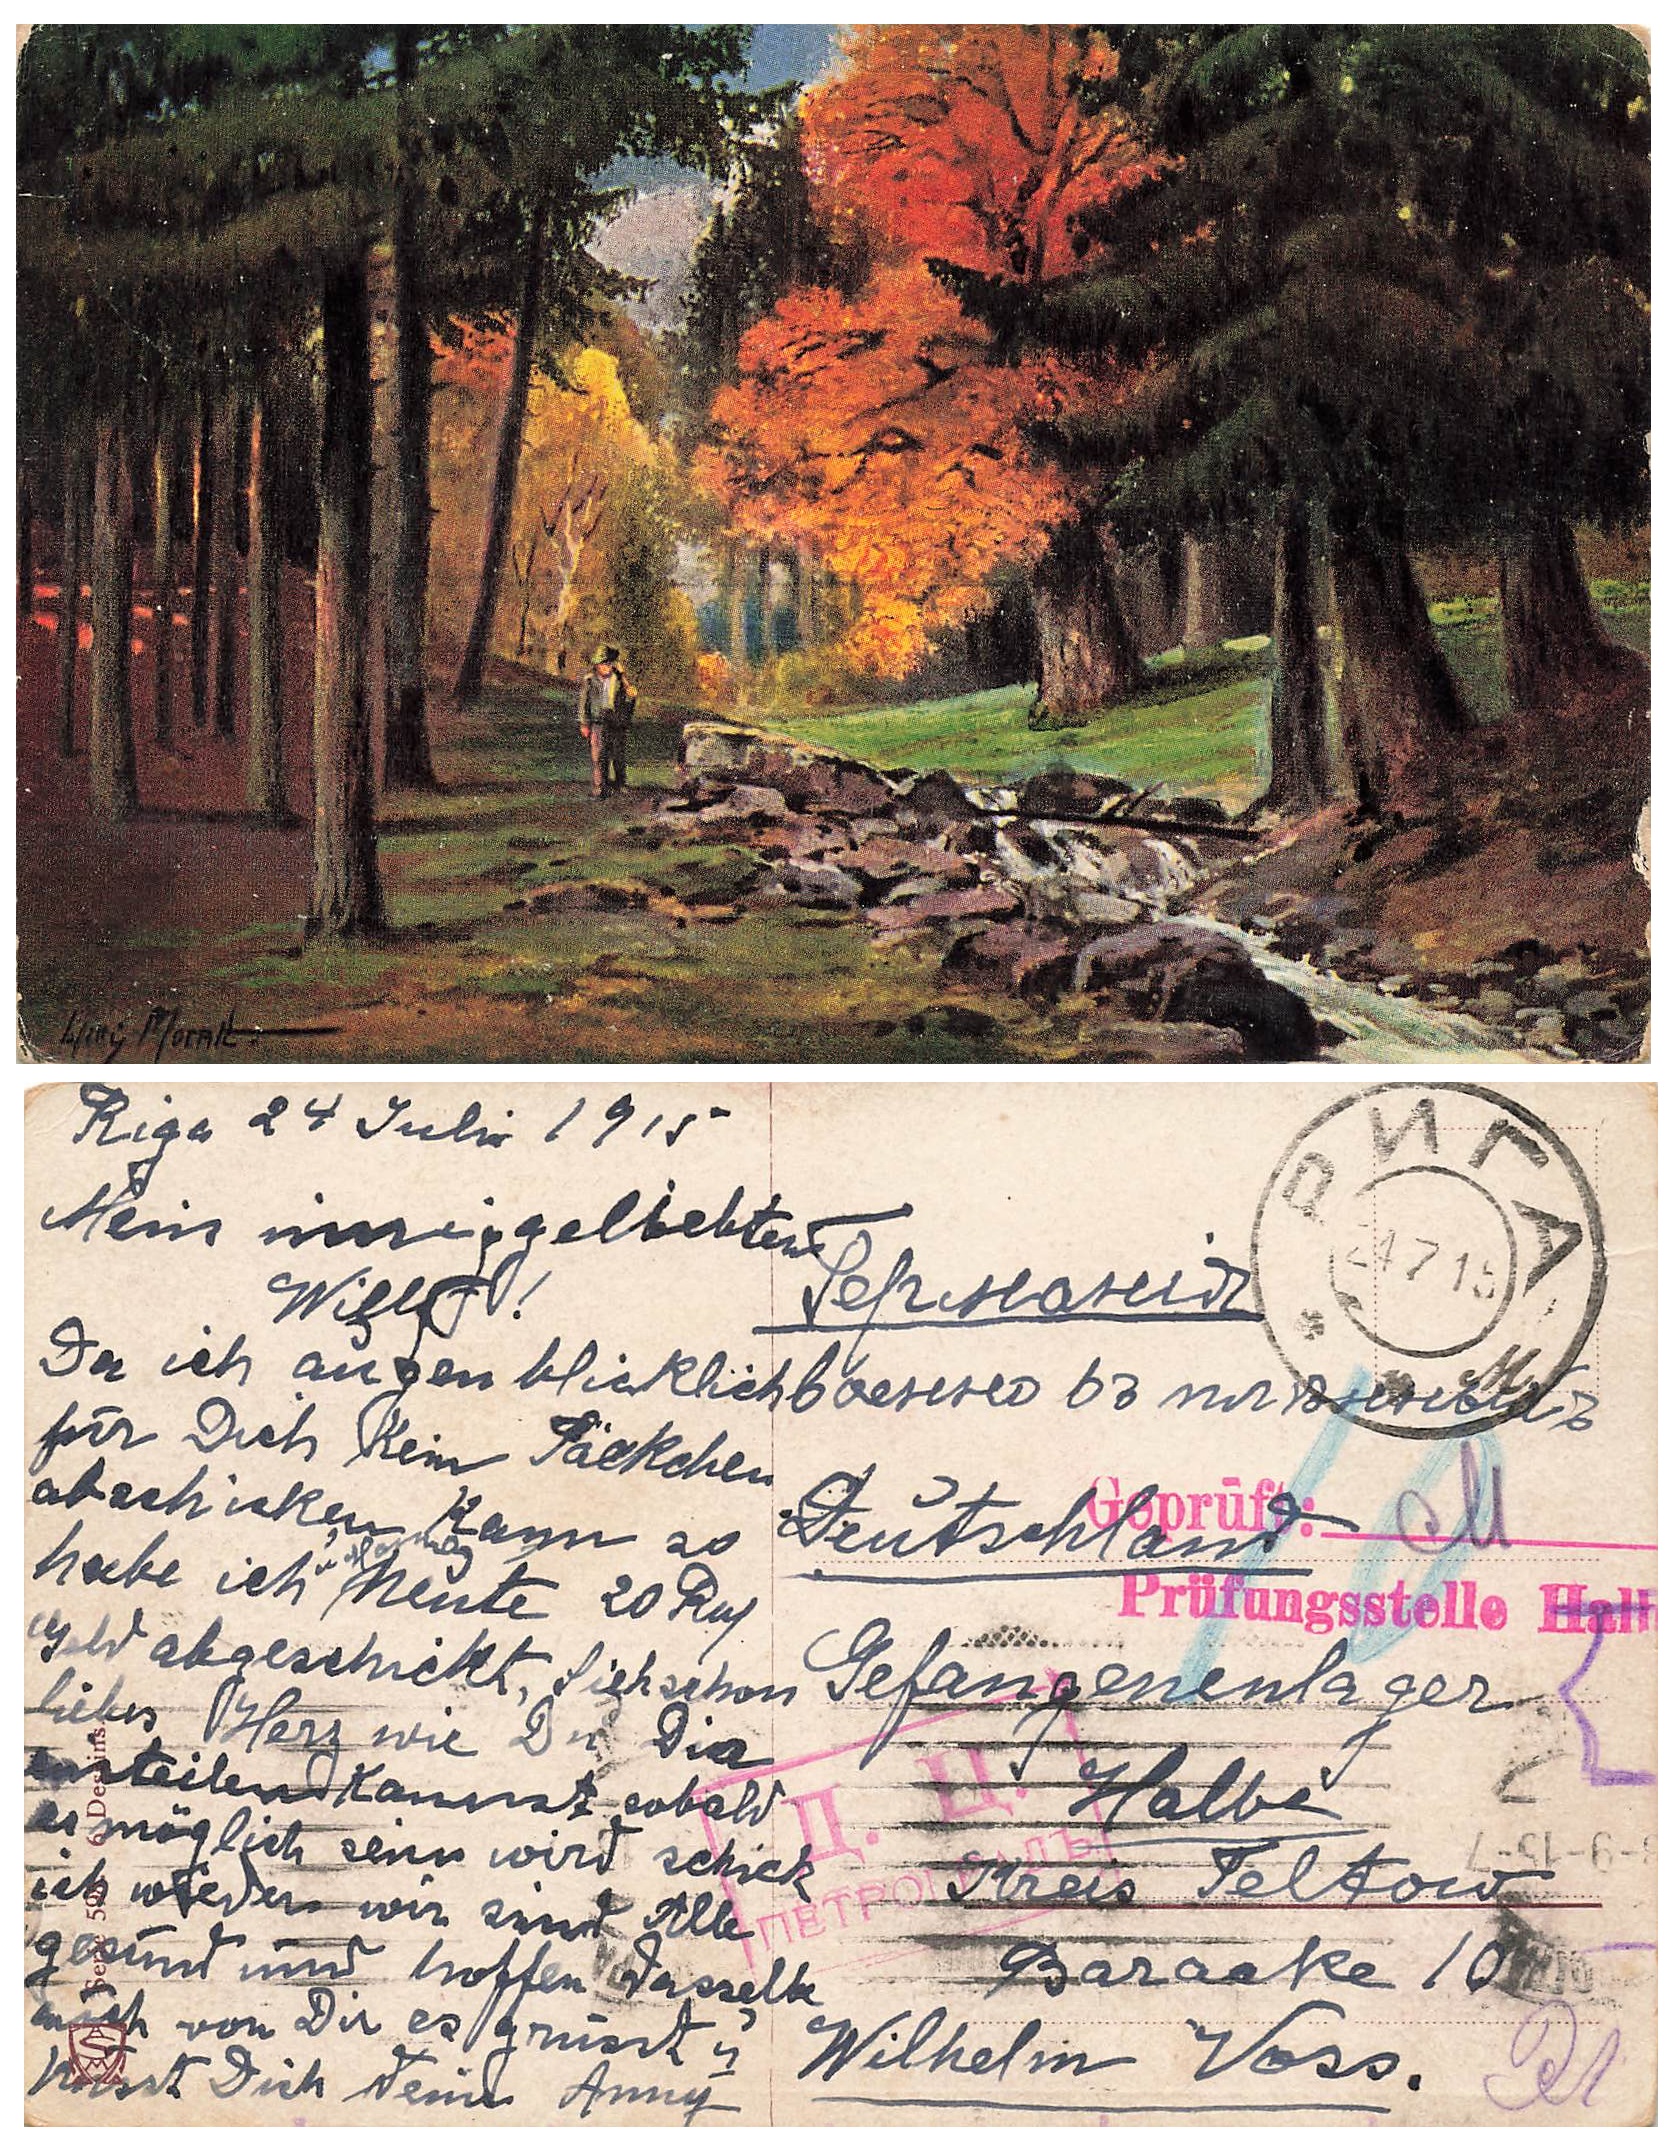 Willy Moralt.
Riga 24 Juli 1915
Mein inniggeliebter
Willy!
Da ich augenblicklich
für Dich kein Päckchen
abschicken kann so
habe ich heute 20 Rub
Geld abgeschickt, sieh schon
liebes Herz wie Du Dir
einteilen kannst sobald
es möglich sein wird schick
ich wieder wir sind Alle
gesund und hoffen dasselbe
auch von Dir es grüsst u
küsst Dich Deine Anny
6 Dessins.
РИГА
24 7 15
Германія
Deutschland
Geprüft: M
Prüfungsstelle Hal
Gefangenenlager
Halbe
Kreis Teltow
Baracke 10
Wilhelm Voss.
Д. Ц.
ПЕТРОГРАДЪ